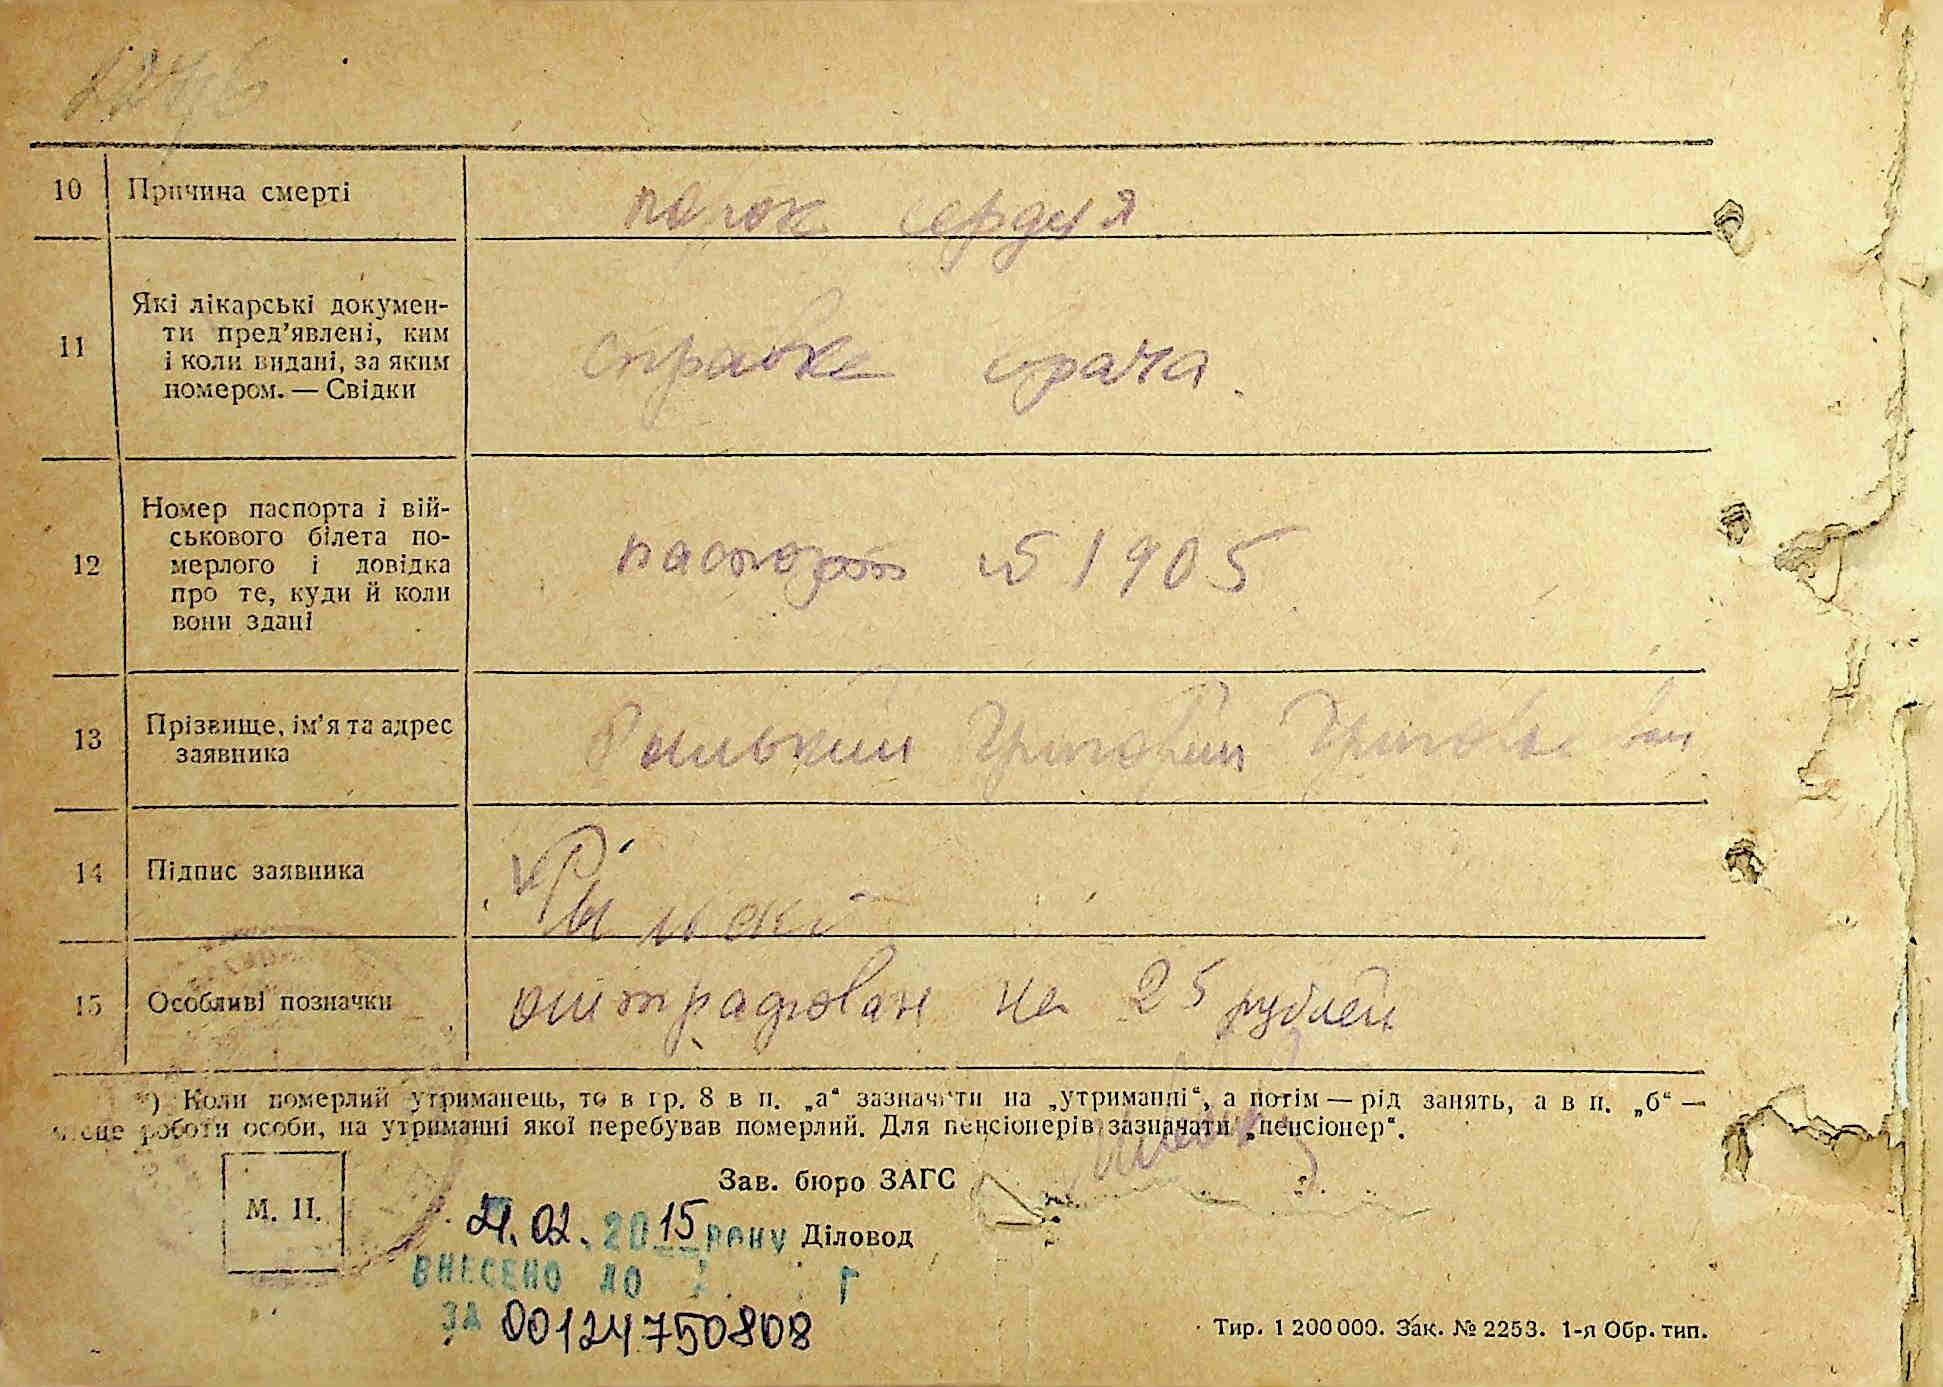 10 Причина смерті порок сердця
11 Які лікарські докумен-
ти пред’явлені, ким
і коли видані, за яким
номером. — Свідки
справке врача.
12 Номер паспорта і вій-
ськового білета по-
мерлого і довідка
про те, куди й коли
вони здані
паспорт № 1905
13 Прізвище, ім’я та адрес
заявника
Григорий
14 Підпис заявника
15 Особливі позначки оштрафован на 25 рублей
*) Коли померлий утриманець, то в гр. 8 в п. „а“ зазначити на „утриманні“, а потім — рід занять, а в п. „б“ —
місце роботи особи, на утриманні якої перебував померлий. Для пенсіонерів зазначати „пенсіонер“.
М. П.
Зав. бюро ЗАГС
21.02.2015 року Діловод
ВНЕСЕНО ДО Г
ЗА 00124750808
Тир. 1 200 000. Зак. № 2253. 1-я Обр. тип.